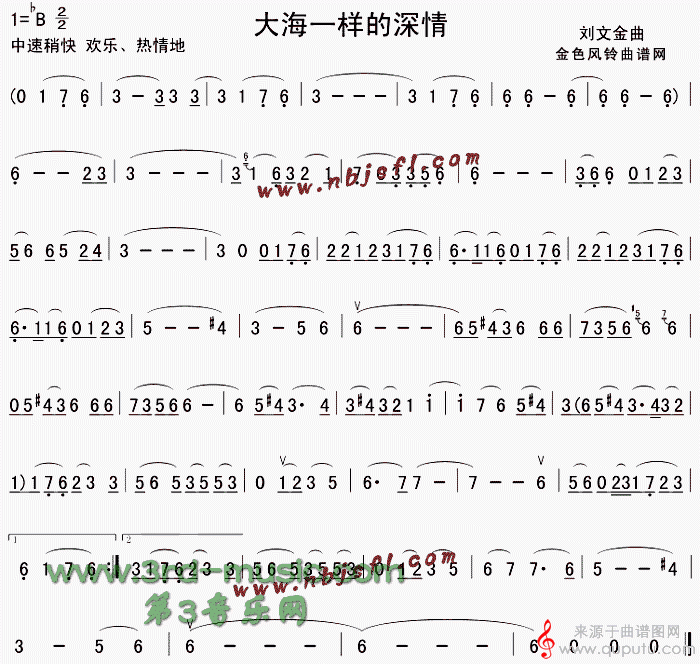 1=♭B 2/2
大海一样的深情
刘文金曲
中速稍快 欢乐、热情地
金色风铃曲谱网
(0 1 7 6 | 3 - 3 3 3 | 3 1 7 6 | 3 - - - | 3 1 7 6 | 6 6 - 6 | 6 - - 6) |
6 - - 2 3 | 3 - - - | 3 1 6 3 2 1 | 7 0 3 3 5 6 | 6 - - - | 3 6 6 0 1 2 3 |
www.nbjsfl.com
5 6 6 5 2 4 | 3 - - - | 3 0 0 1 7 6 | 2 2 1 2 3 1 7 6 | 6· 1 1 6 0 1 7 6 | 2 2 1 2 3 1 7 6 |
6· 1 1 6 0 1 2 3 | 5 - - #4 | 3 - 5 6 | 6 - - - | 6 5 #4 3 6 6 6 | 7 3 5 6 6 6 |
0 5 #4 3 6 6 6 | 7 3 5 6 6 6 - | 6 5 #4 3· 4 | 3 #4 3 2 1 i | i 7 6 5 | 3 (6 5 #4 3· 4 3 2 |
1) 1 7 6 2 3 3 | 5 6 5 3 5 5 3 | 0 1 2 3 5 | 6· 7 7 - | 7 - - 6 | 5 6 0 2 3 1 7 2 |
1 2
6 1 7 6 :| 3 1 7 6 2 3 3 | 5 6 5 3 5 5 3 | 0 1 2 3 5 | 6 7 7· 6 | 5 - - - |
www.3rd-music.com
www.nbjsfl.com
第3音乐网
3 - 5 6 | 6 - - - | 6 - - - | 6 0 0 0 ‖
来源于曲谱图网
www.quputu.com